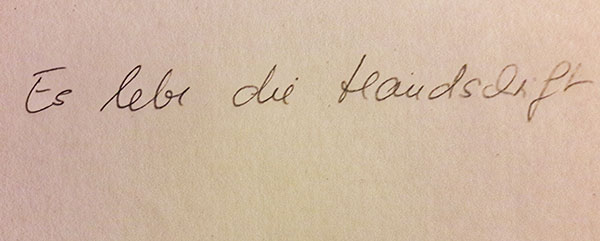 Es lebe die Handschrift